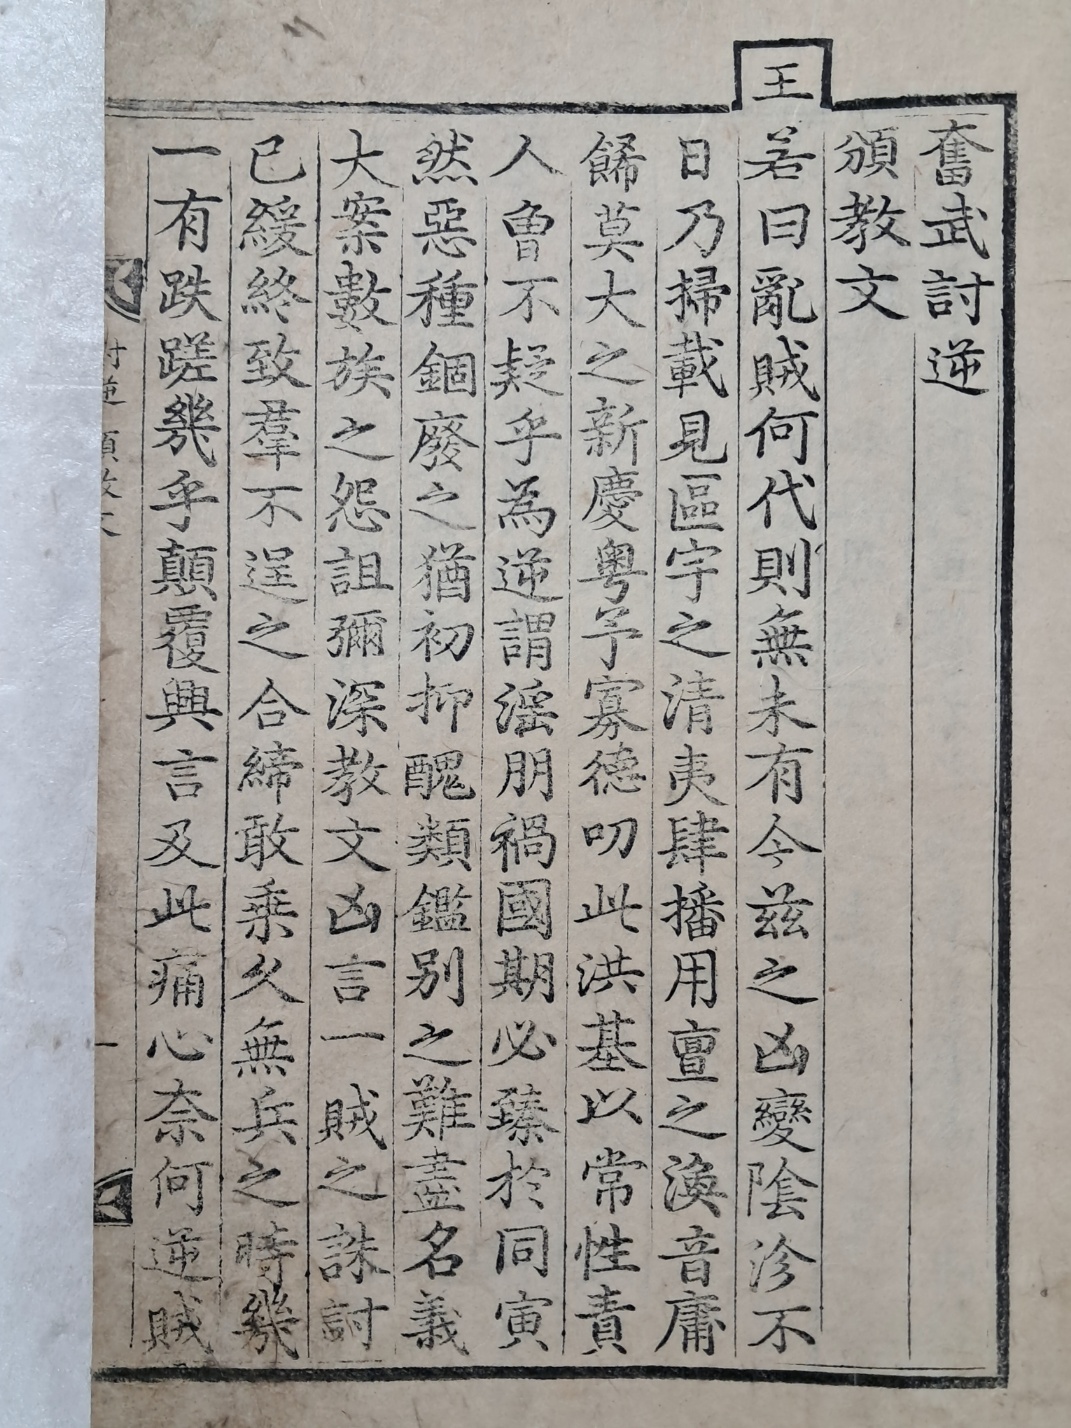 奮武討逆
頒教文
王
若曰亂賊何代則無未有今茲之凶變陰沴不
日乃掃載見區宇之清夷肆播用亶之渙音庸
餙莫大之新慶粤予寡德叨此洪基以常性責
人曾不疑乎為逆謂滛朋禍國期必臻於同寅
然惡種錮廢之猶初抑醜類鑑別之難盡名義
大案數族之怨詛彌深教文凶言一賊之誅討
已緩終致羣不逞之合締敢乘久無兵之時幾
一有跌蹉幾乎顛覆興言及此痛心奈何逆賊
討逆 頒教文
一